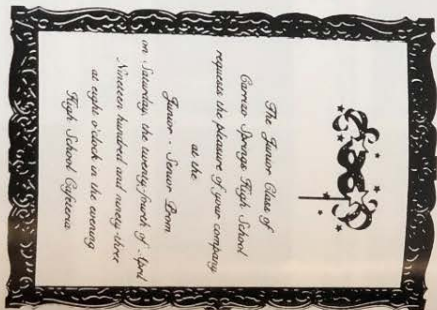 The Junior Class of
Carrizo Springs High School
requests the pleasure of your company
at the
Junior - Senior Prom
on Saturday, the twenty-fourth of April
Nineteen hundred and ninety-three
at eight o'clock in the evening
High School Cafeteria